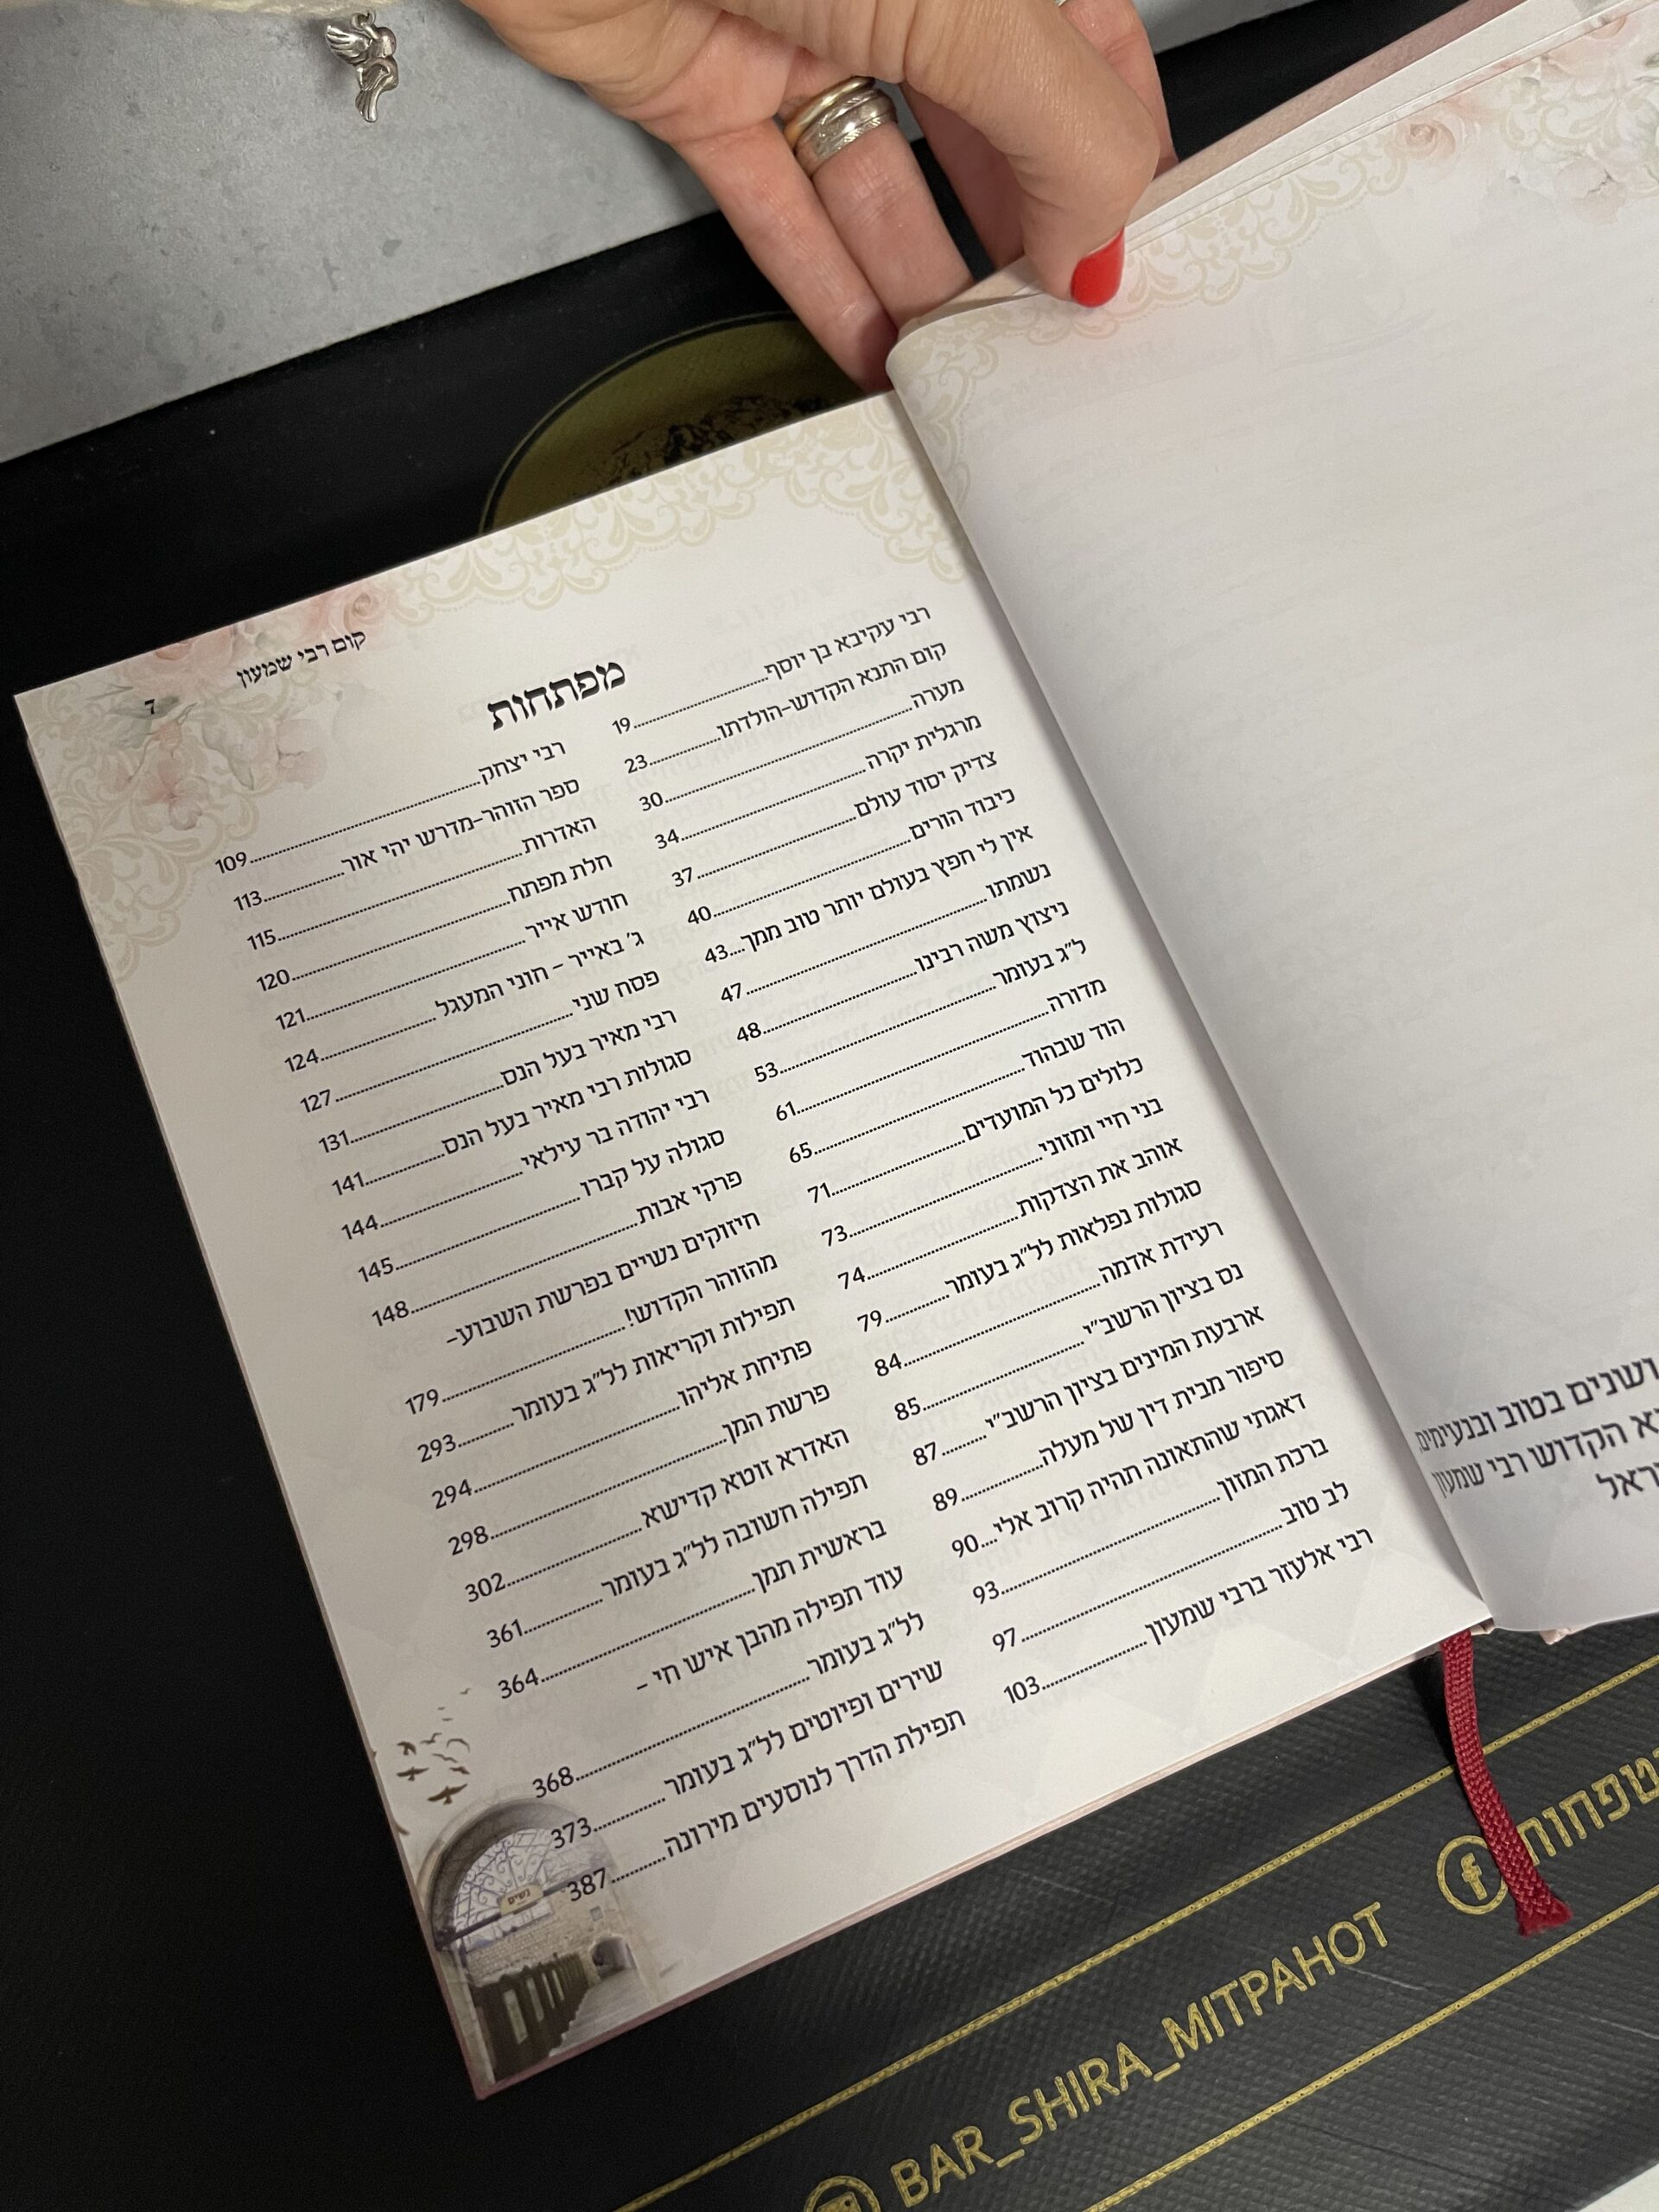 קום רבי שמעון
7
מפתחות
רבי עקיבא בן יוסף....................19
קום התנא הקדוש-הולדתו..........23
מערה....................30
מרגלית יקרה....................34
צדיק יסוד עולם....................37
כיבוד הורים....................40
אין לי חפץ בעולם יותר טוב ממך....43
נשמתו....................47
ניצוץ משה רבינו....................48
ל"ג בעומר....................53
מדורה....................61
הוד שבהוד....................65
כלולים כל המועדים....................71
בני חיי ומזוני....................73
אוהב את הצדקות....................74
סגולות נפלאות לל"ג בעומר..........79
רעידת אדמה....................84
נס בציון הרשב"י....................85
ארבעת המינים בציון הרשב"י........87
סיפור מבית דין של מעלה............89
דאגתי שהתאונה תהיה קרוב אלי....90
ברכת המזון....................93
לב טוב....................97
רבי אלעזר ברבי שמעון....................103
רבי יצחק....................109
ספר הזוהר-מדרש יהי אור............113
האדרות....................115
חלת מפתח....................120
חודש אייר....................121
ג' באייר - חוני המעגל....................124
פסח שני....................127
רבי מאיר בעל הנס....................131
סגולות רבי מאיר בעל הנס............141
רבי יהודה בר עילאי....................144
סגולה על קברו....................145
פרקי אבות....................148
חיזוקים נשיים בפרשת השבוע-
מהזוהר הקדוש!....................179
תפילות וקריאות לל"ג בעומר..........293
פתיחת אליהו....................294
פרשת המן....................298
האדרא זוטא קדישא....................302
תפילה חשובה לל"ג בעומר............361
בראשית תמן....................364
עוד תפילה מהבן איש חי -
לל"ג בעומר....................368
שירים ופיוטים לל"ג בעומר............373
תפילת הדרך לנוסעים מירונה........387
נשים
ושנים בטוב ובנעימים,
הקדוש רבי שמעון
BAR_SHIRA_MITPAHOT